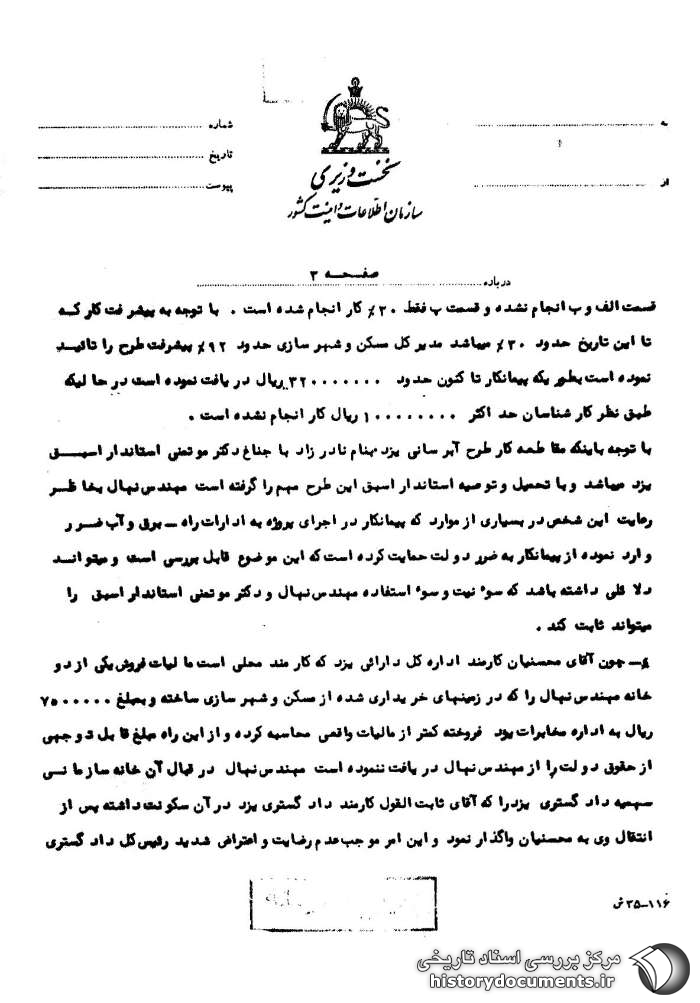 به
شماره
تاریخ
از
پیوست
نخست وزیری
سازمان اطلاعات و امنیت کشور
درباره
صفحه ۳
قسمت الف و ب انجام نشده و قسمت پ فقط ۳۰٪ کار انجام شده است . با توجه به پیشرفت کار که
تا این تاریخ حدود ۳۰٪ میباشد مدیر کل مسکن و شهر سازی حدود ۹۲٪ پیشرفت طرح را تائید
نموده است بطوریکه پیمانکار تا کنون حدود ۳۲۰۰۰۰۰۰۰ ریال دریافت نموده است در حالیکه
طبق نظر کارشناسان حد اکثر ۱۰۰۰۰۰۰۰۰ ریال کار انجام نشده است .
با توجه باینکه مقاطعه کار طرح آبرسانی یزد بنام نادر زاد با جناغ دکتر موتمنی استاندار اسبق
یزد میباشد و با تحمیل و توصیه استاندار اسبق این طرح مهم را گرفته است مهندس نهال بخاطر
رعایت این شخص در بسیاری از موارد که پیمانکار در اجرای پروژه به ادارات راه ـ برق و آب ضرر
وارد نموده از پیمانکار به ضرر دولت حمایت کرده است که این موضوع قابل بررسی است و میتواند
دلائلی داشته باشد که سوء نیت و سوء استفاده مهندس نهال و دکتر موتمنی استاندار اسبق را
میتواند ثابت کند .
۴ـ چون آقای محسنیان کارمند اداره کل دارائی یزد که کارمند محلی است مالیات فروش یکی از دو
خانه مهندس نهال را که در زمینهای خریداری شده از مسکن و شهر سازی ساخته و بمبلغ ۷۵۰۰۰۰۰
ریال به اداره مخابرات یزد فروخته کمتر از مالیات واقعی محاسبه کرده و از این راه مبلغ قابل توجهی
از حقوق دولت را از مهندس نهال دریافت ننموده است مهندس نهال در قبال آن خانه سازمانی
سهمیه دادگستری یزد را که آقای ثابت القول کارمند دادگستری یزد در آن سکونت داشته پس از
انتقال وی به محسنیان واگذار نمود و این امر موجب عدم رضایت و اعتراض شدید رئیس کل دادگستری
۱۱۶ـ۳۵ ش
مرکز بررسی اسناد تاریخی
historydocuments.ir